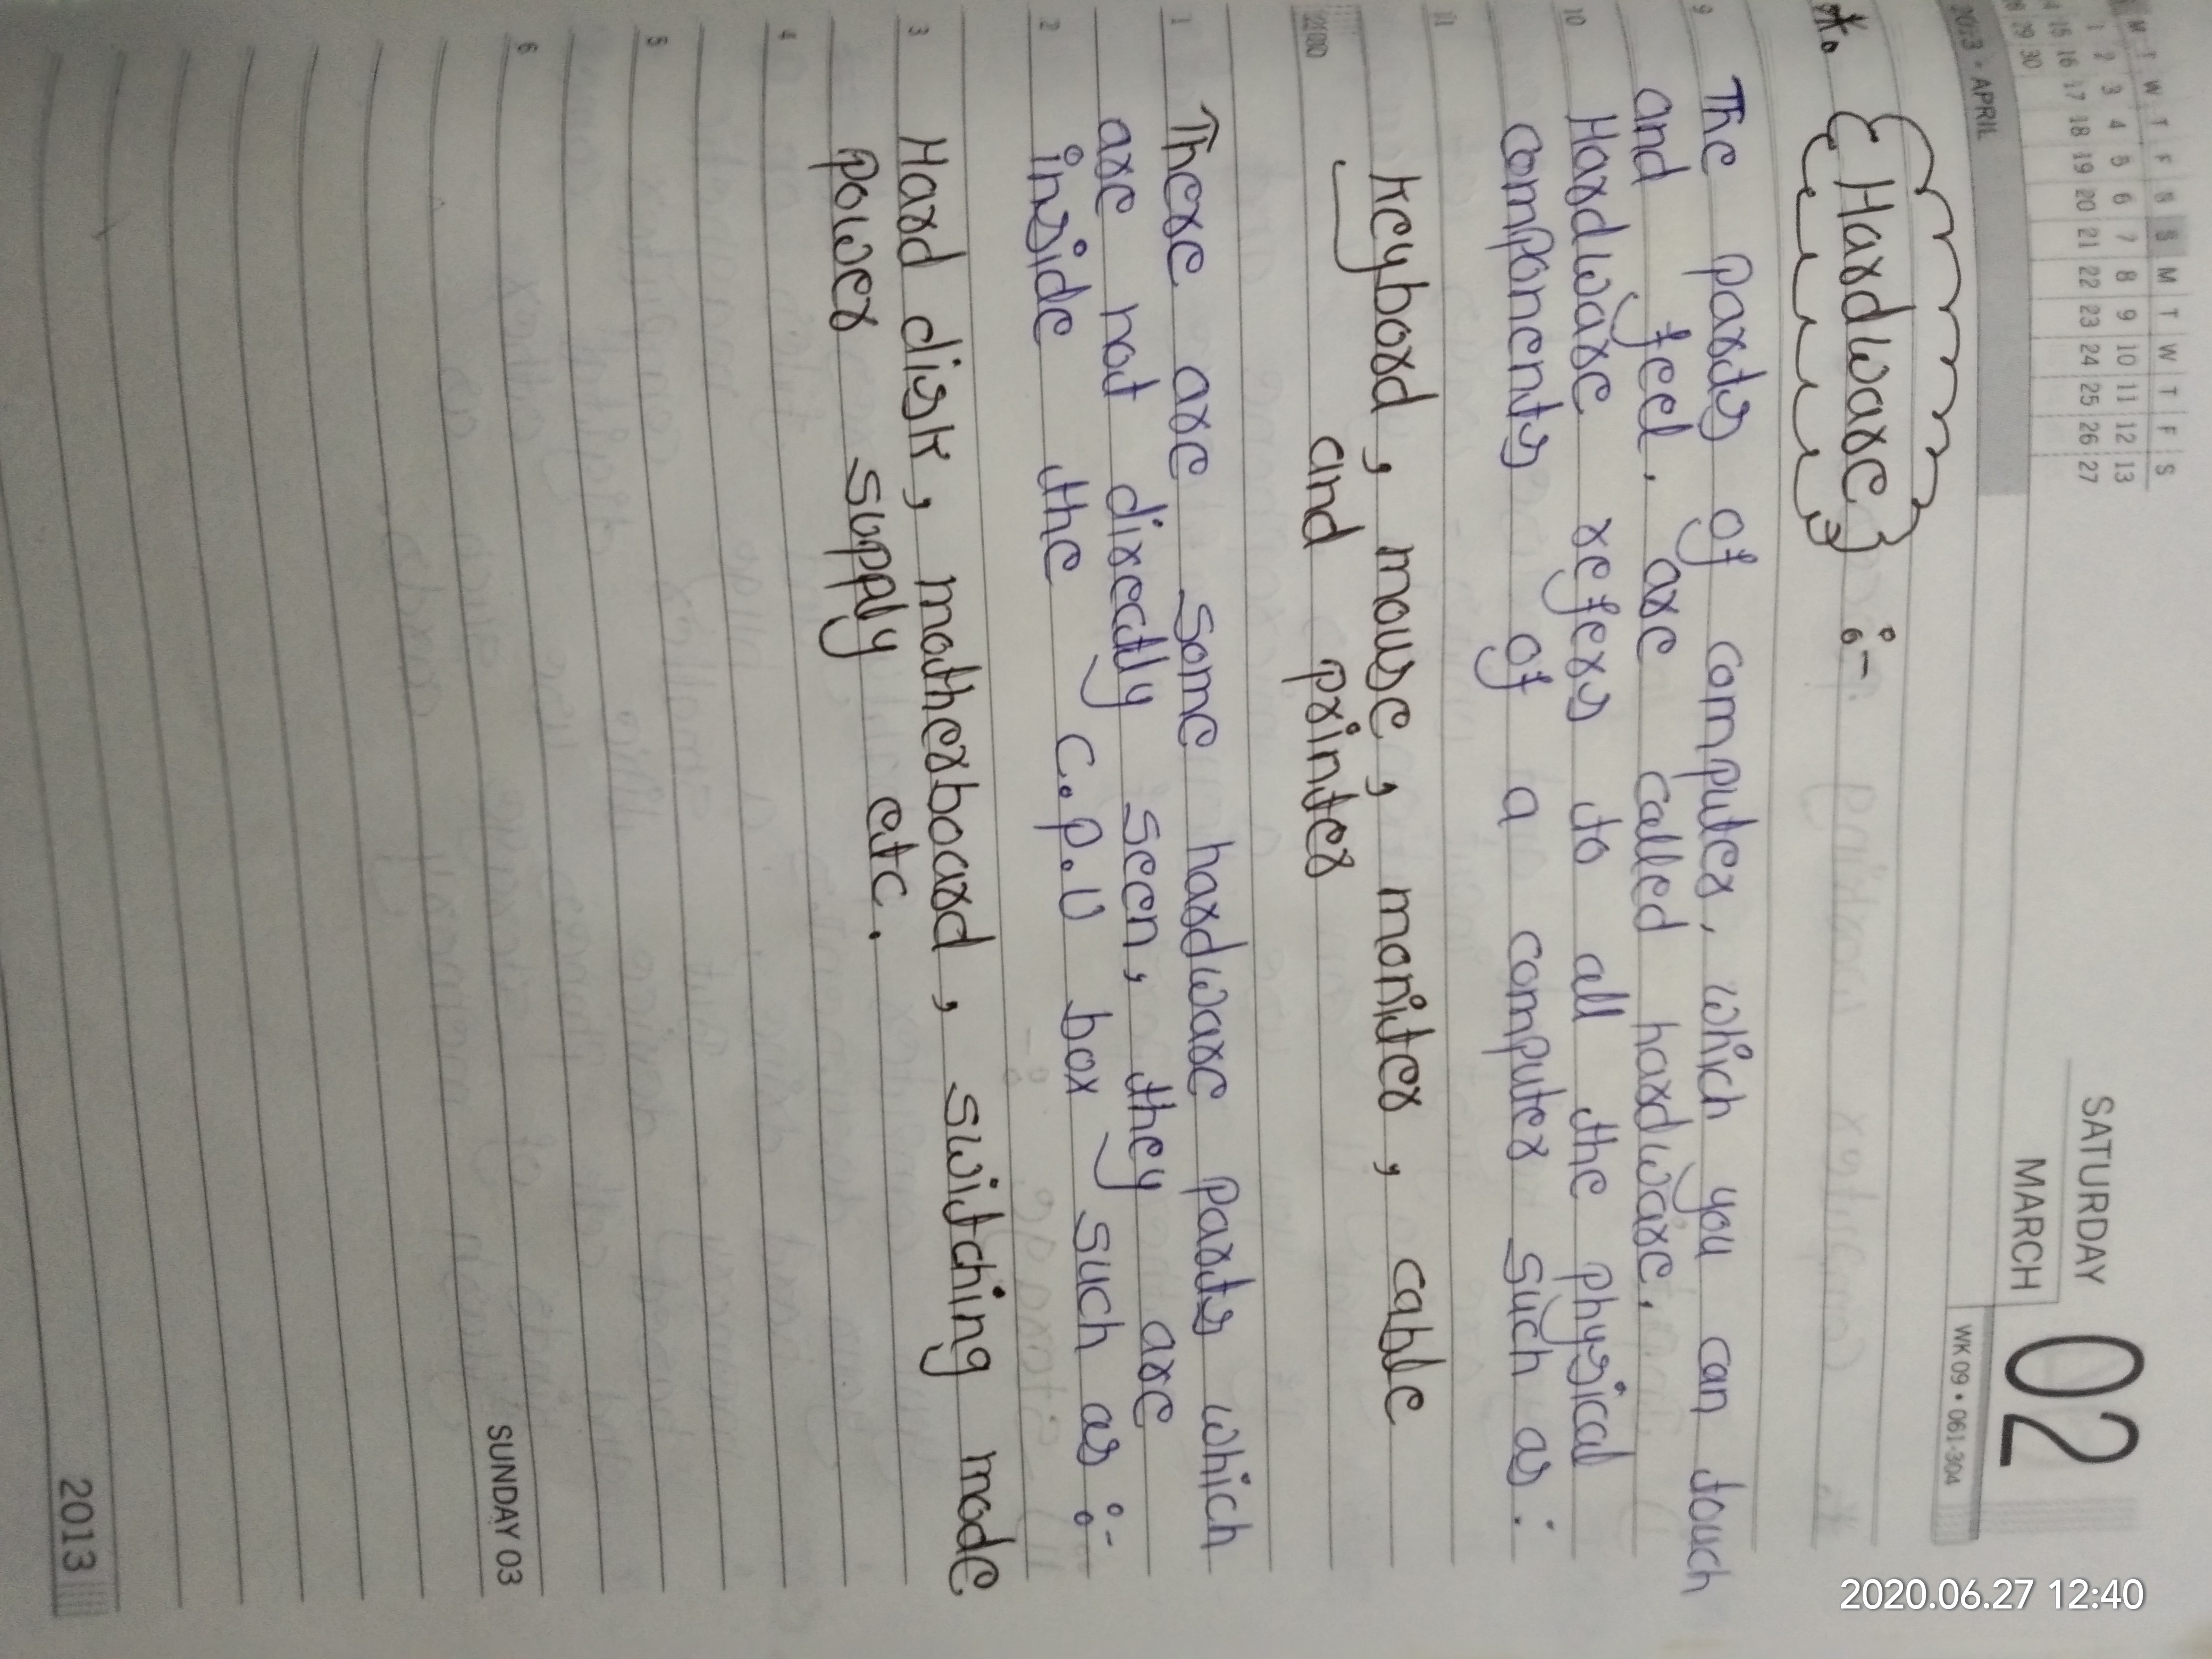 M T W T F S S M T W T F S
1 2 3 4 5 6 7 8 9 10 11 12 13
14 15 16 17 18 19 20 21 22 23 24 25 26 27
28 29 30
2013 - APRIL
SATURDAY
MARCH
02
WK 09 • 061-304
2020.06.27 12:40
*. Hardware :-
9 The parts of computer, which you can touch
and feel, are called hardware.
10 Hardware refers to all the physical
components of a computer such as :
11
keybord , mouse , moniter , cable
and printer
1 There are some hardware parts which
are not directly seen, they are
2 inside the C.P.U box such as :-
3 Hard disk, motherboard , switching mode
power supply etc.
4
5
6
SUNDAY 03
2013